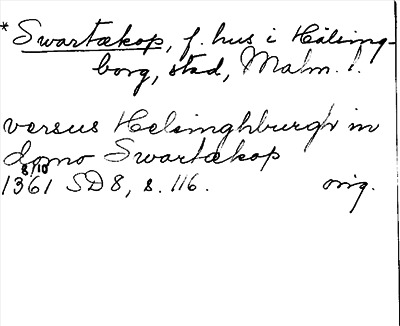 * Swartækop, f. hus i Hälsing-
borg, stad, Malm. l.
versus Helsinghburgh in
domo Swartækop
8/10
1361 SD 8, s. 116. orig.